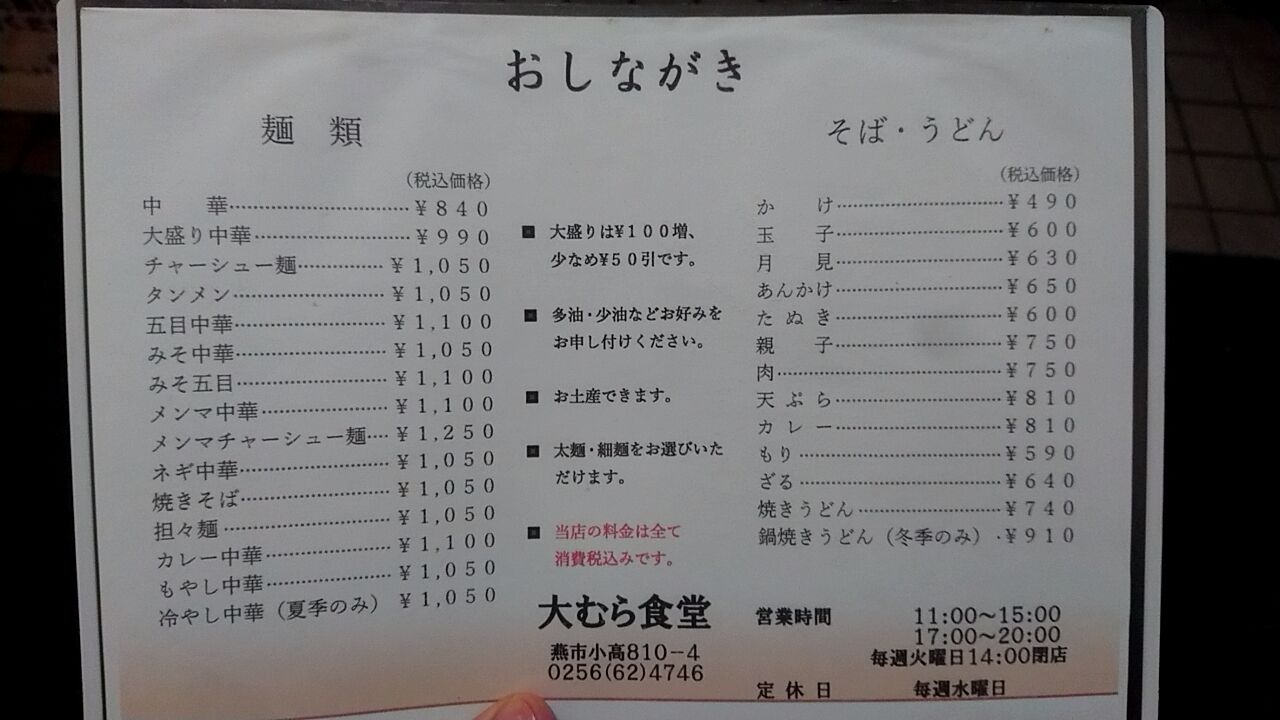 おしながき
麺 類
(税込価格)
中 華…………¥840
大盛り中華…………¥990
チャーシュー麺…………¥1,050
タンメン…………¥1,050
五目中華…………¥1,100
みそ中華…………¥1,050
みそ五目…………¥1,100
メンマ中華…………¥1,100
メンマチャーシュー麺…¥1,250
ネギ中華…………¥1,050
焼きそば…………¥1,050
担々麺…………¥1,050
カレー中華…………¥1,100
もやし中華…………¥1,050
冷やし中華(夏季のみ) ¥1,050
■ 大盛りは¥100増、
少なめ¥50引です。
■ 多油・少油などお好みを
お申し付けください。
■ お土産できます。
■ 太麺・細麺をお選びいた
だけます。
■ 当店の料金は全て
消費税込みです。
大むら食堂
燕市小高810-4
0256(62)4746
そば・うどん
(税込価格)
か け…………¥490
玉 子…………¥600
月 見…………¥630
あんかけ…………¥650
たぬき…………¥600
親 子…………¥750
肉…………¥750
天ぷら…………¥810
カレー…………¥810
もり…………¥590
ざる…………¥640
焼きうどん…………¥740
鍋焼きうどん(冬季のみ)・¥910
営業時間 11:00~15:00
17:00~20:00
毎週火曜日14:00閉店
定休日 毎週水曜日